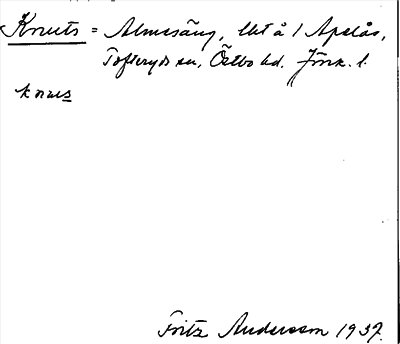 Knuts = Almesäng, lht å 1 Apelås,
Tofteryds sn, Östbo hd. Jönk. l.
knus
Fritz Andersson 1937.